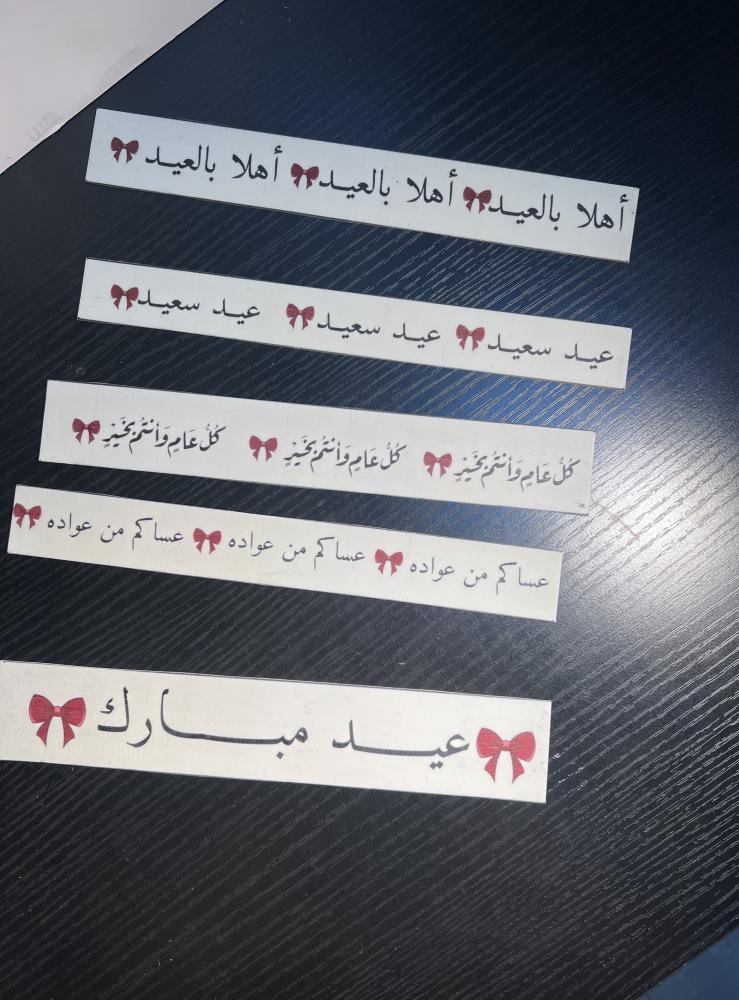 أهلا بالعيـد أهلا بالعيـد أهلا بالعيـد
عيـد سعيـد عيـد سعيـد عيـد سعيـد
كُلُّ عَامٍ وَأَنتُمْ بِخَيْرٍ كُلُّ عَامٍ وَأَنتُمْ بِخَيْرٍ كُلُّ عَامٍ وَأَنتُمْ بِخَيْرٍ
عساكم من عواده عساكم من عواده عساكم من عواده
عيـــد مبـــارك